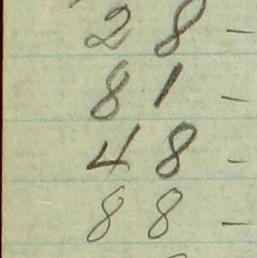 28 -
81 -
48 -
88 -